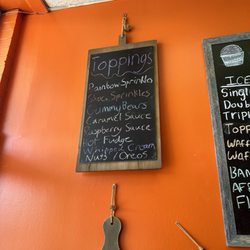 Toppings
Rainbow Sprinkles
Choc. Sprinkles
Gummy Bears
Caramel Sauce
Raspberry Sauce
Hot Fudge
Whipped Cream
Nuts / Oreos
ICE
Singl
Doub
Tripl
Topp
Waff
Waff
BAN
AFF
Fl